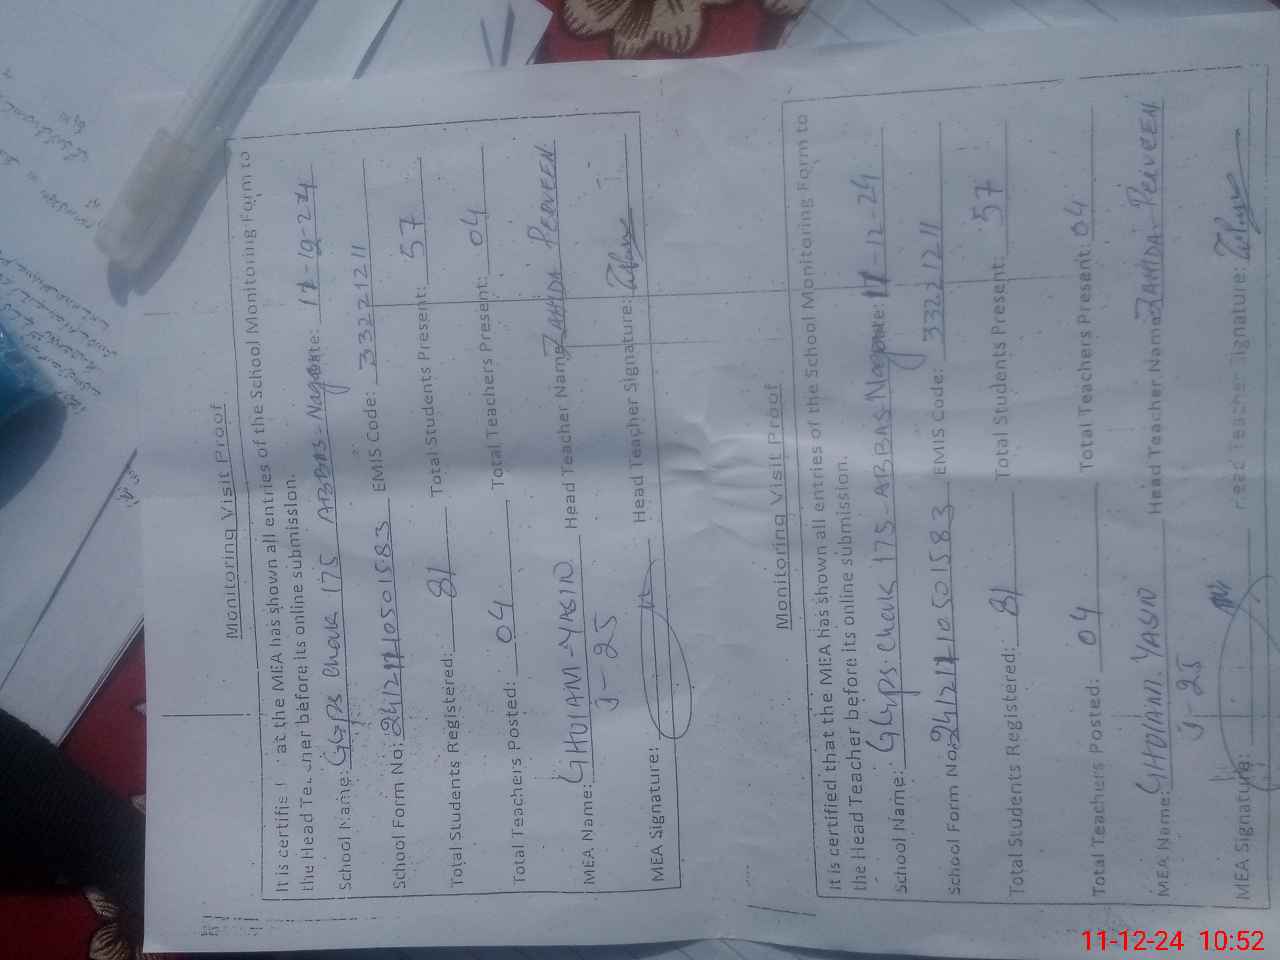 Monitoring Visit Proof
It is certifie at the MEA has shown all entries of the School Monitoring Form to
the Head Teacher before its online submission.
School Name: GGPS Chak 175 ABBAS-Nagar Date:
School Form No: EMIS Code: 33221211
Total Students Registered: 81 Total Students Present: 57
Total Teachers Posted: 04 Total Teachers Present: 04
MEA Name: GHULAM-YASIN Head Teacher Name: ZAHIDA PERVEEN
J-25
MEA Signature: Head Teacher Signature:
Monitoring Visit Proof
It is certified that the MEA has shown all entries of the School Monitoring Form to
the Head Teacher before its online submission.
School Name: GGPS. Chak 175-ABBAS Nagar Date: 11-12-24
School Form No: EMIS Code: 33221211
Total Students Registered: 81 Total Students Present: 57
Total Teachers Posted: 04 Total Teachers Present: 04
MEA Name: GHULAM. YASIN Head Teacher Name: ZAHIDA PERVEEN
J-25
MEA Signature: Head Teacher Signature:
11-12-24 10:52